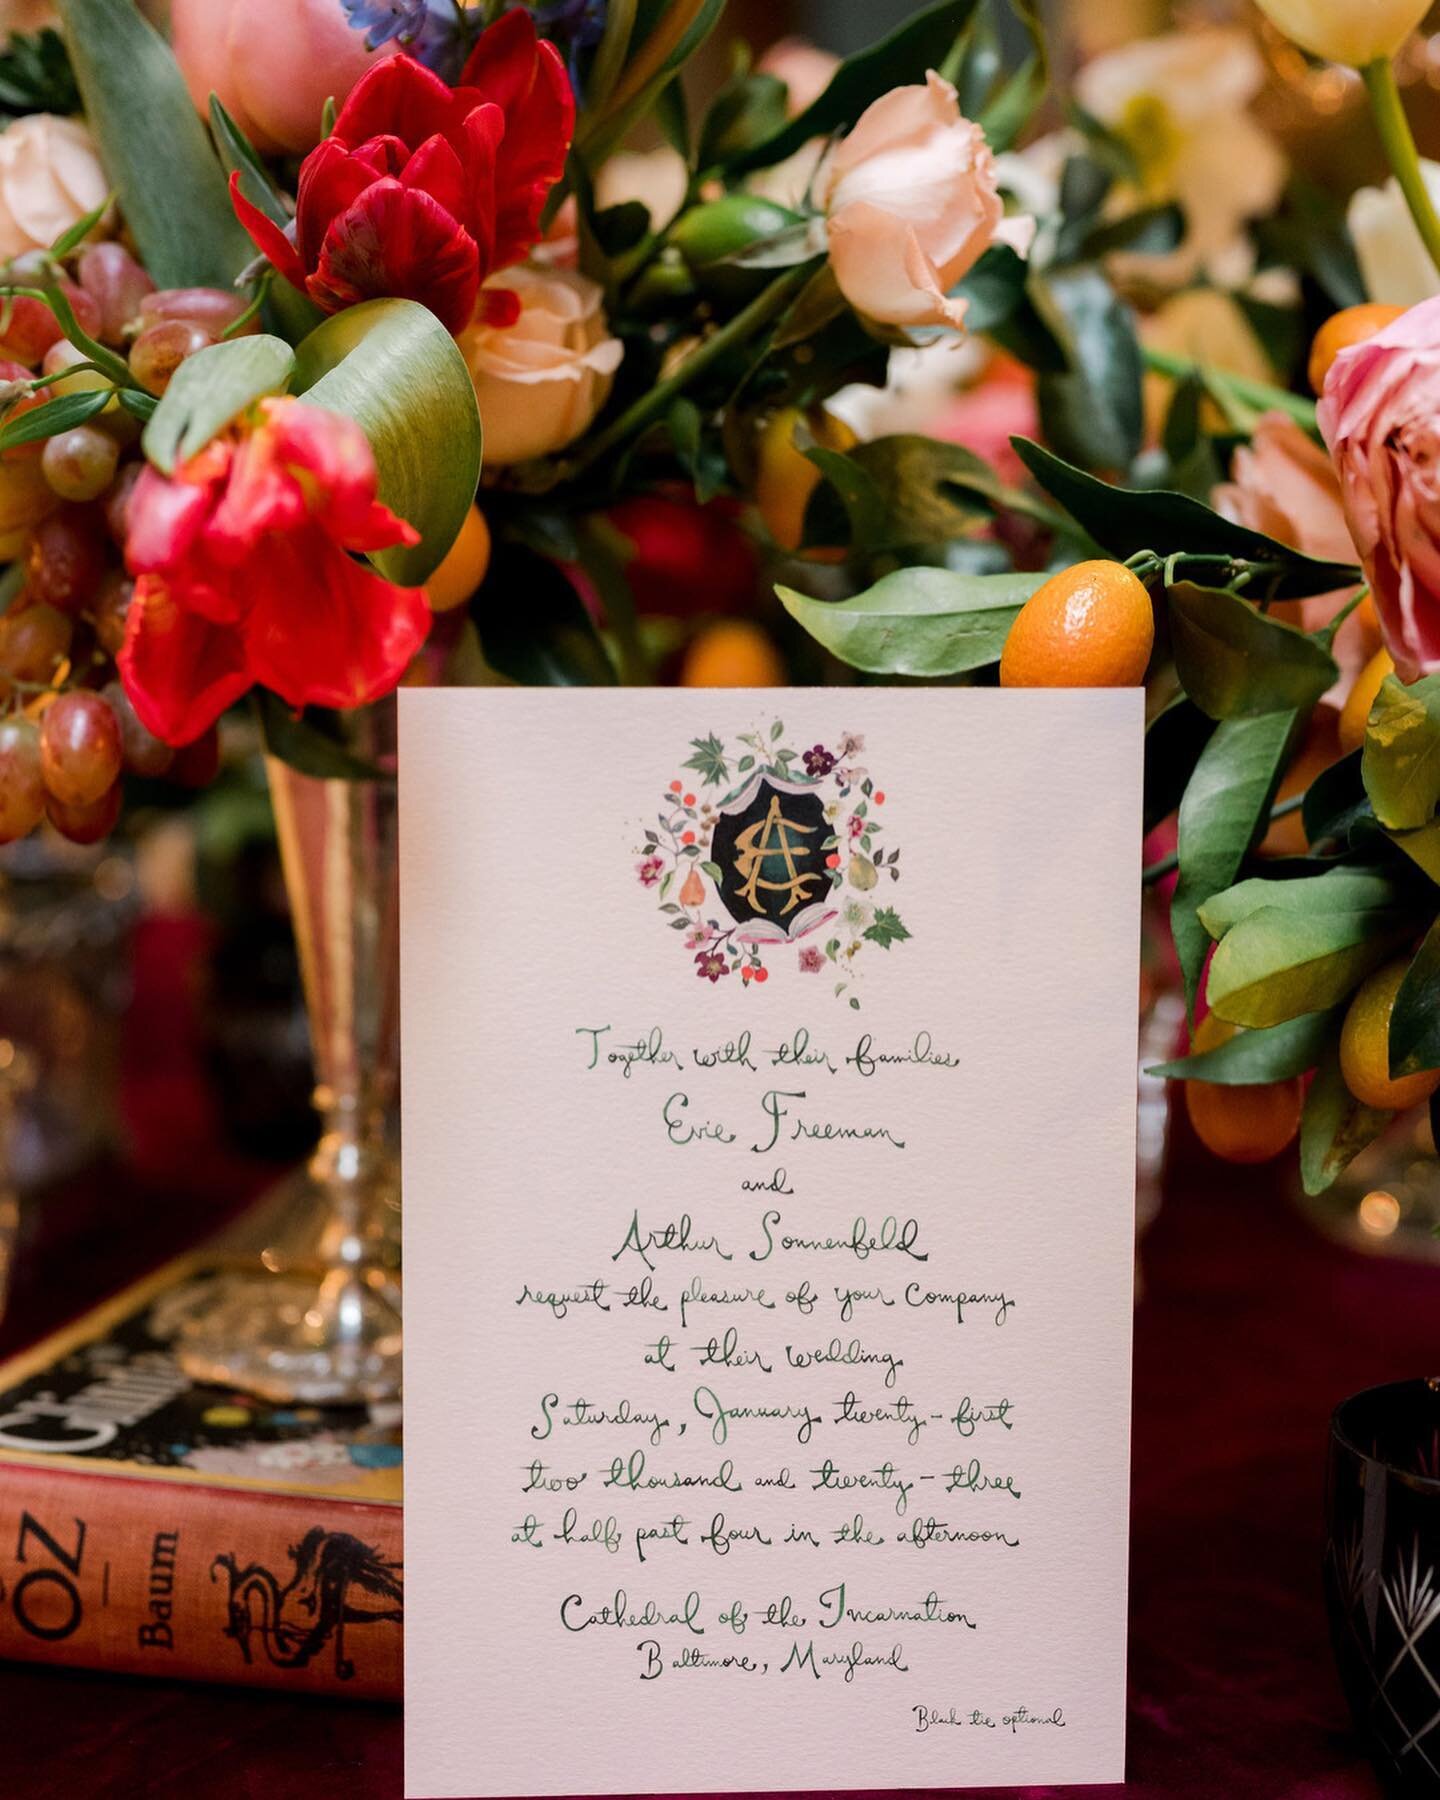 Together with their families
Evie Freeman
and
Arthur Sonnenfeld
request the pleasure of your Company
at their wedding
Saturday, January twenty-first
two thousand and twenty-three
at half past four in the afternoon
Cathedral of the Incarnation
Baltimore, Maryland
Black tie optional
OZ
Baum